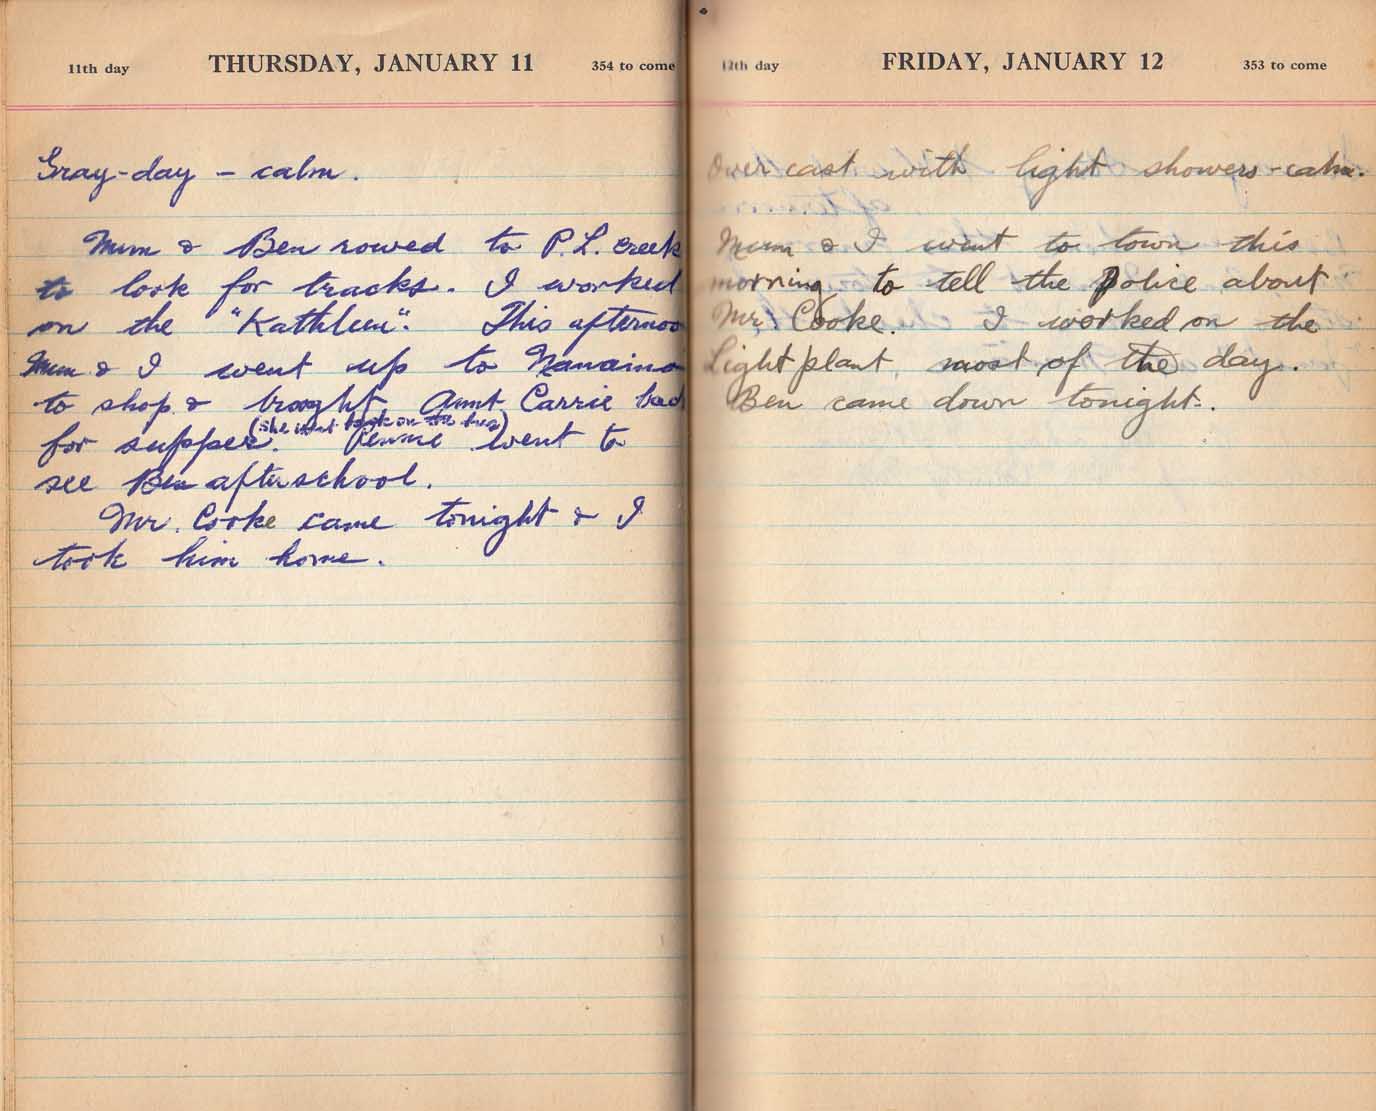 11th day THURSDAY, JANUARY 11 354 to come
Gray-day - calm.
Mum & Ben rowed to P.L. creek
to look for tracks. I worked
on the "Kathleen". This afternoo
Mum & I went up to Nanaimo
to shop & brought Aunt Carrie bac
(she went back on the bus)
for supper. Pennie went to
see Ben after school.
Mr. Cooke came tonight & I
took him home.
12th day FRIDAY, JANUARY 12 353 to come
Over cast with light showers - calm.
Mum & I went to town this
morning to tell the Police about
Mr. Cooke. I worked on the
Light plant, most of the day.
Ben came down tonight.